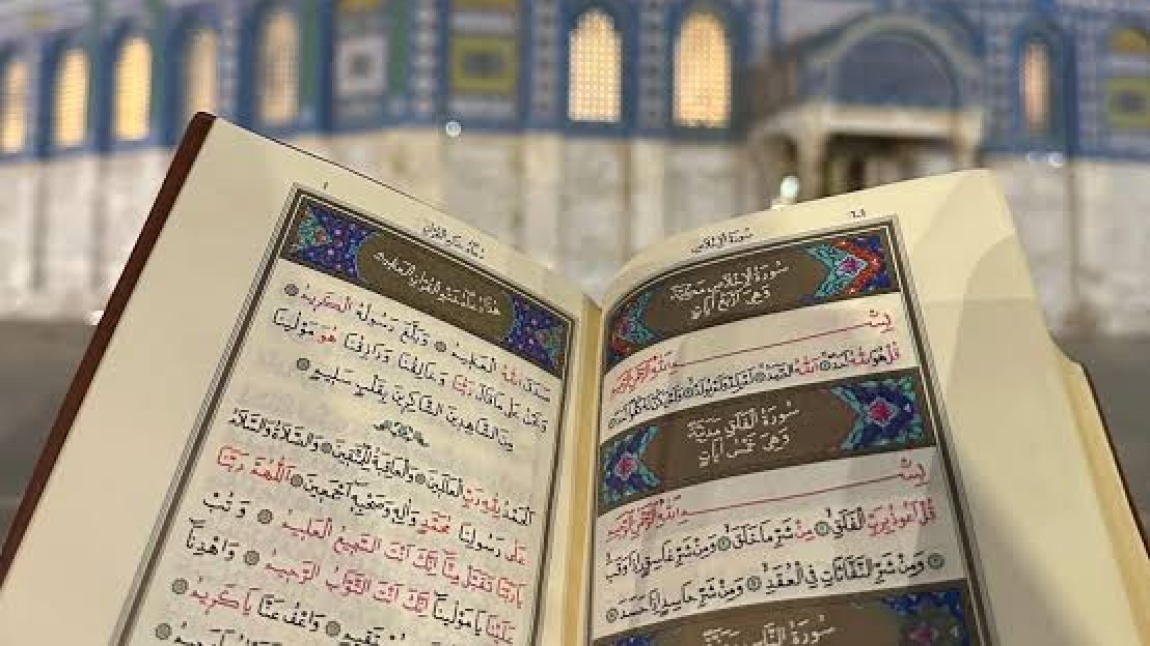 سُورَةُ الْإِخْلَاصِ
سُورَةُ الْإِخْلَاصِ مَكِّيَّةٌ
وَهِيَ أَرْبَعُ آيَاتٍ
بِسْمِ اللّٰهِ الرَّحْمٰنِ الرَّحِيمِ
قُلْ هُوَ اللّٰهُ أَحَدٌ اَللّٰهُ الصَّمَدُ لَمْ يَلِدْ وَلَمْ يُولَدْ وَلَمْ يَكُنْ لَهُ كُفُوًا أَحَدٌ
سُورَةُ الْفَلَقِ مَدَنِيَّةٌ
وَهِيَ خَمْسُ آيَاتٍ
بِسْمِ اللّٰهِ الرَّحْمٰنِ الرَّحِيمِ
قُلْ أَعُوذُ بِرَبِّ الْفَلَقِ مِنْ شَرِّ مَا خَلَقَ وَمِنْ شَرِّ غَاسِقٍ إِذَا وَقَبَ
وَمِنْ شَرِّ النَّفَّاثَاتِ فِي الْعُقَدِ وَمِنْ شَرِّ حَاسِدٍ إِذَا حَسَدَ
سُورَةُ النَّاسِ
هٰذَا دُعَاءُ خَتْمِ الْقُرْآنِ الْعَظِيمِ
صَدَقَ اللّٰهُ الْعَظِيمُ وَبَلَّغَ رَسُولُهُ الْكَرِيمُ
وَنَحْنُ عَلَى مَا قَالَ رَبُّنَا وَخَالِقُنَا وَرَازِقُنَا هُوَ مَوْلَينَا
مِنَ الشَّاهِدِينَ الشَّاكِرِينَ بِقَلْبٍ سَلِيمٍ
اَلْحَمْدُ لِلّٰهِ رَبِّ الْعَالَمِينَ وَالْعَاقِبَةُ لِلْمُتَّقِينَ وَالصَّلَاةُ وَالسَّلَامُ
عَلَى رَسُولِنَا مُحَمَّدٍ وَآلِهِ وَصَحْبِهِ أَجْمَعِينَ اَللّٰهُمَّ رَبَّنَا
يَا رَبَّنَا تَقَبَّلْ مِنَّا إِنَّكَ أَنْتَ السَّمِيعُ الْعَلِيمُ وَتُبْ
عَلَيْنَا يَا مَوْلَينَا إِنَّكَ أَنْتَ التَّوَّابُ الرَّحِيمُ وَاهْدِنَا
وَاعْفُ عَنَّا يَا كَرِيمُ